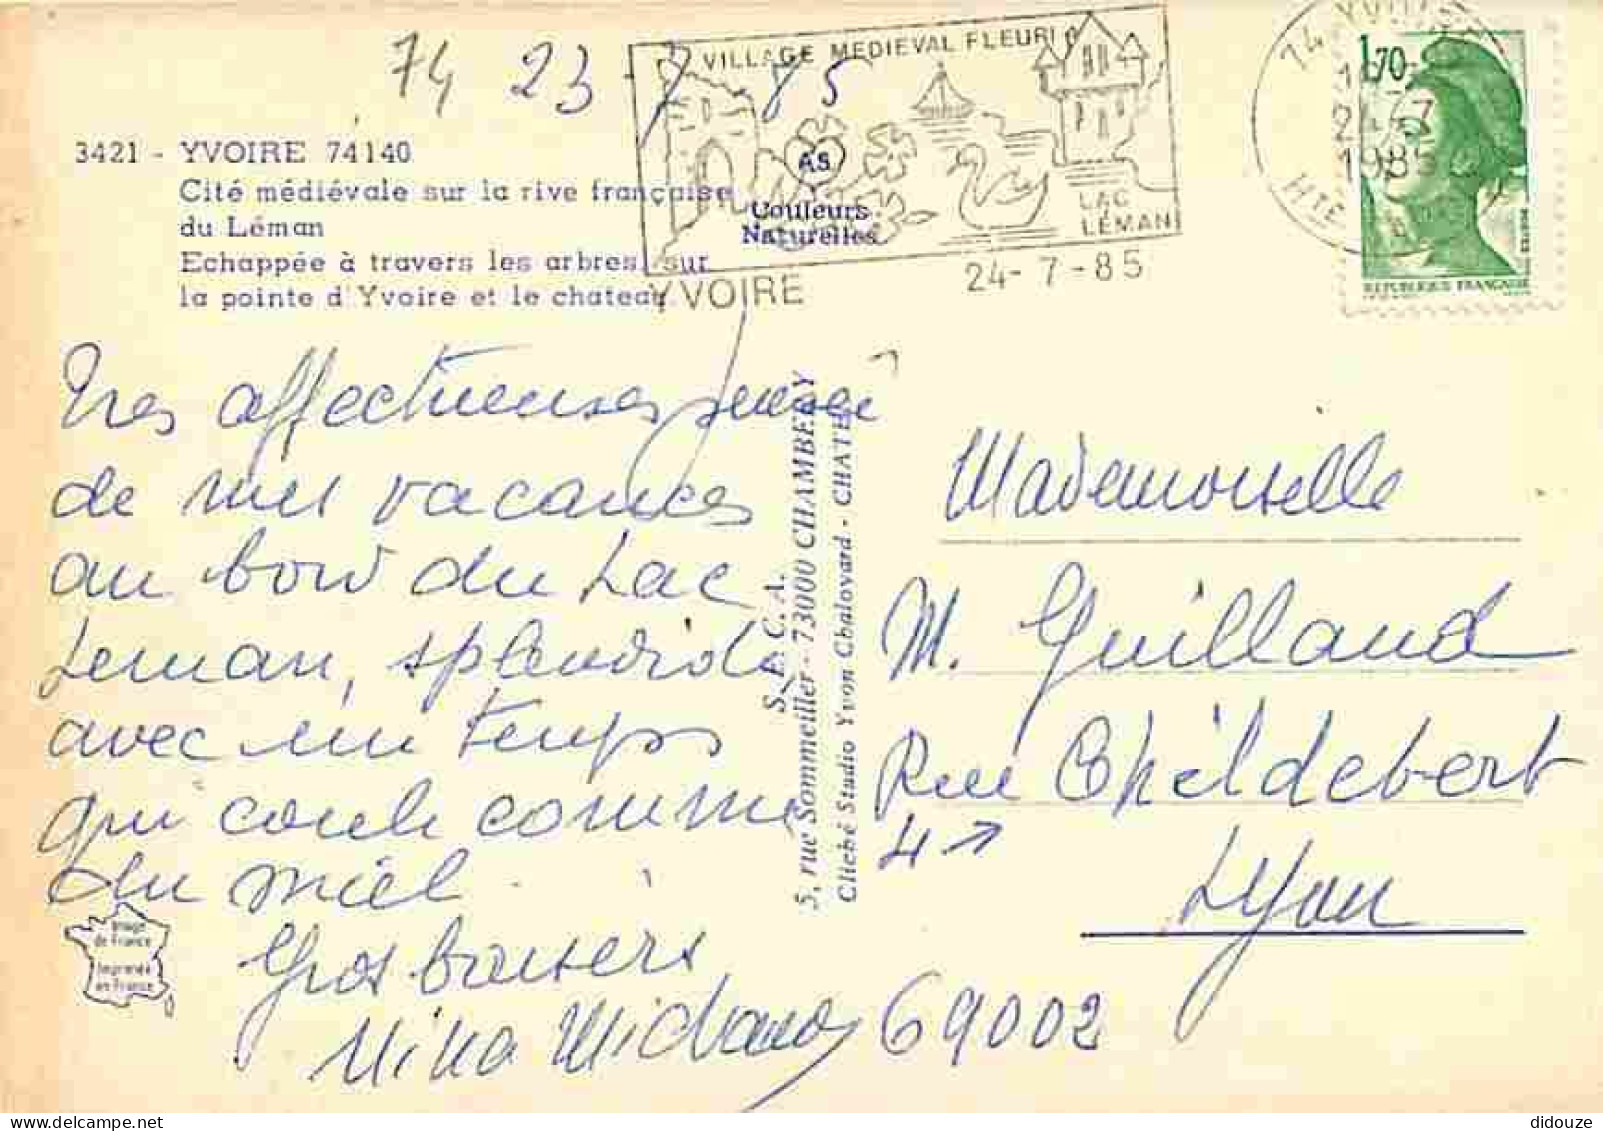 74 23-7 85
VILLAGE MEDIEVAL FLEURI
LAC
LÉMAN
YVOIRE
24-7-85
74 YVOIRE
1985
HTE
1,70
REPUBLIQUE FRANÇAISE
3421 - YVOIRE 74140
Cité médiévale sur la rive française
du Léman
Echappée à travers les arbres, sur
la pointe d'Yvoire et le chateau.
AS
Couleurs
Naturelles
Très affectueuses
de mes vacances
au bord du Lac
Leman, splendide
avec un temps
qui coule comme
du miel.
Gros baisers
Nina
S.P.C.A.
5, rue Sommeiller - 73000 CHAMBERY
Cliché Studio Yvon Chalovard - CHATEL
Mademoiselle
M. Guillaud
Rue Childebert
4
Lyon
69002
Image
de France
Imprimée
en France
didouze